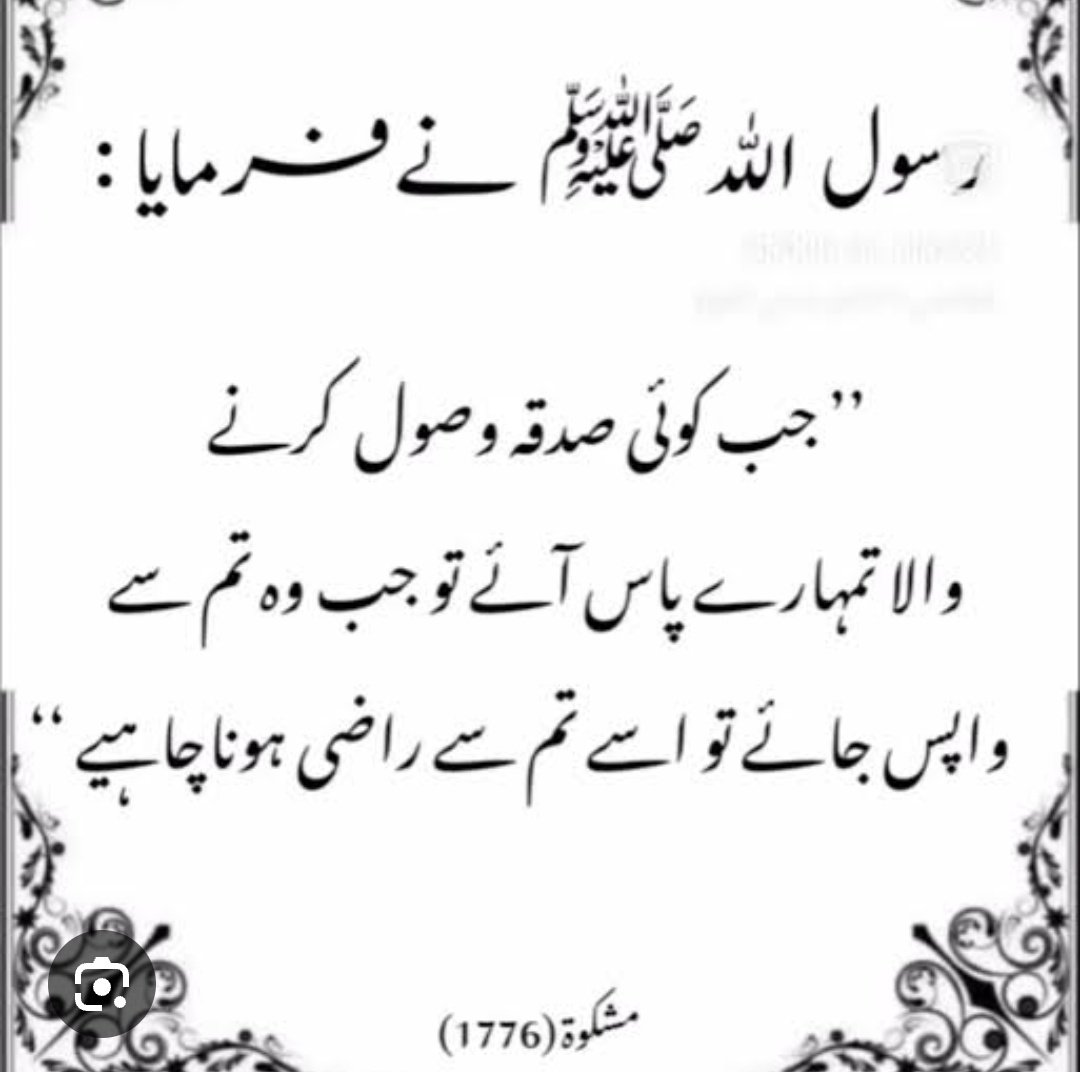 رسول اللہ ﷺ نے فرمایا :
’’جب کوئی صدقہ وصول کرنے
والا تمہارے پاس آئے تو جب وہ تم سے
واپس جائے تو اسے تم سے راضی ہونا چاہیے‘‘
مشکوۃ (1776)